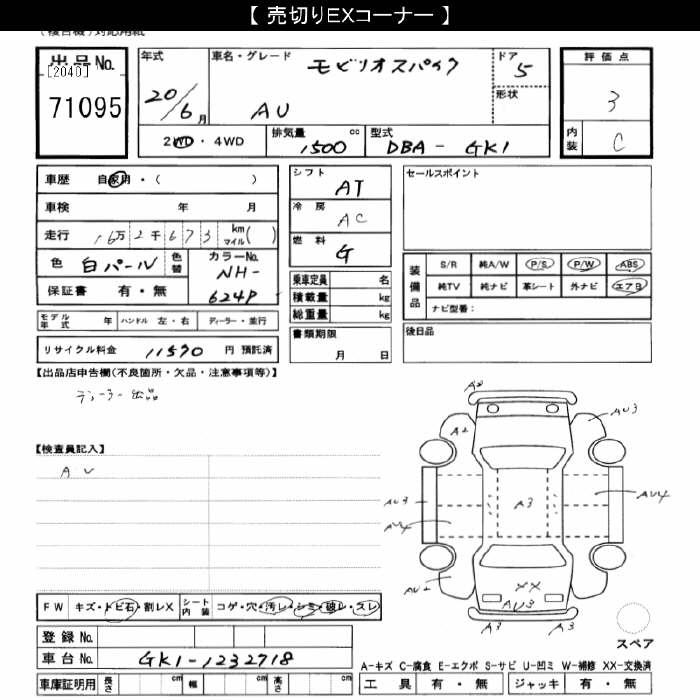 【 売切りEXコーナー 】
(複合機)対応用紙
出品No.
[2040]
71095
年式
20/6月
車名・グレード
モビリオスパイク
AU
ドア
5
形状
評価点
3
内装
C
2WD・4WD
排気量
1500 cc
型式
DBA- GK1
車歴 自家用・( )
車検 年 月
走行 16万2千673 km マイル( )
色 白パール 色替
カラーNo.
NH-
624P
保証書 有・無
シフト
AT
冷房
AC
燃料
G
乗車定員 名
積載量 kg
総重量 kg
セールスポイント
装備品
S/R 純A/W P/S P/W ABS
純TV 純ナビ 革シート 外ナビ エアB
ナビ型番:
モデル年式 年 ハンドル 左・右 ディーラー・並行
リサイクル料金 11570 円 預託済
書類期限
月 日
後日品
【出品店申告欄(不良箇所・欠品・注意事項等)】
ディーラー出品
【検査員記入】
AU
A2
A2
AU3
AU3
A3
AU4
AU4
AU2
XX
AU3
A3
A3
スペア
FW キズ・トビ石・割レX シート内装 コゲ・穴・汚レ・シミ・破レ・スレ
登録No.
車台No. GK1-1232718
車庫証明用 長さ cm 幅 cm 高さ cm
A-キズ C-腐食 E-エクボ S-サビ U-凹ミ W-補修 XX-交換済
工具 有・無 ジャッキ 有・無